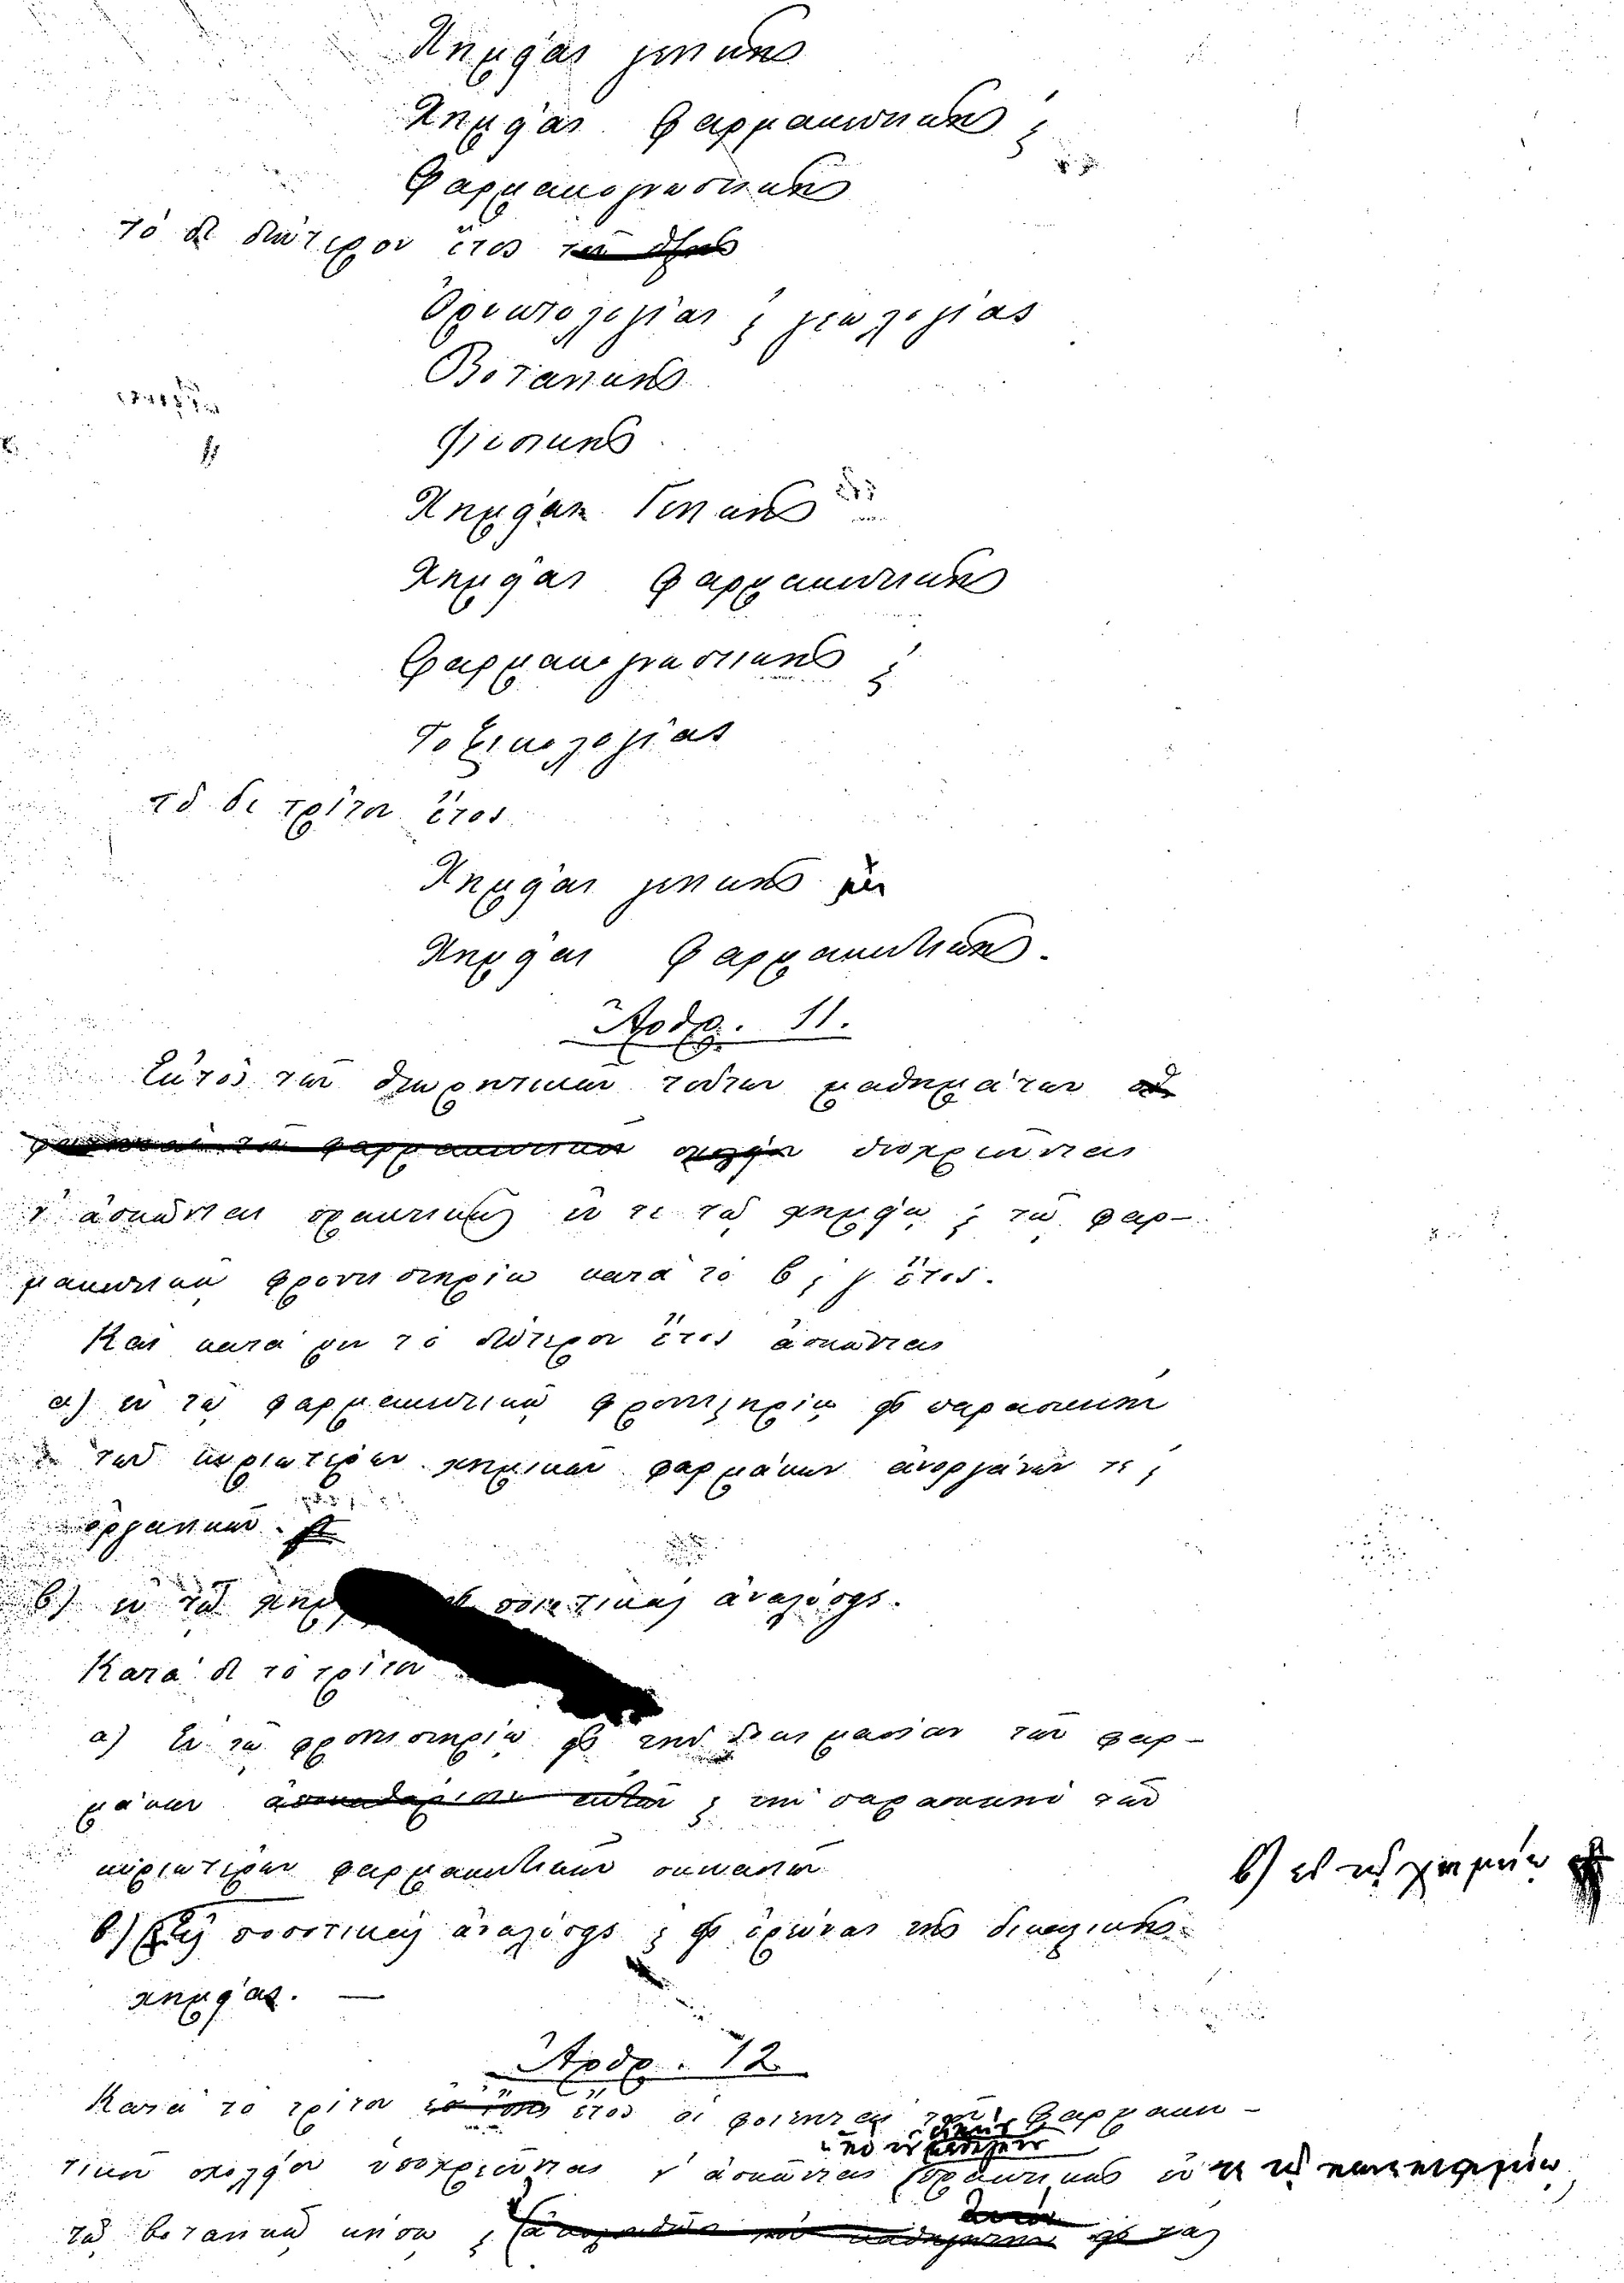 Χημείας γενικῆς
Χημείας Φαρμακευτικῆς καὶ
Φαρμακογνωστικῆς
τὸ δὲ δεύτερον ἔτος
Ὀρυκτολογίας καὶ γεωλογίας
Βοτανικῆς
Φυσικῆς
Χημείας Γενικῆς
Χημείας Φαρμακευτικῆς
Φαρμακογνωστικῆς καὶ
Τοξικολογίας
τὸ δὲ τρίτον ἔτος
Χημείας γενικῆς
Χημείας Φαρμακευτικῆς.
Ἄρθρ. 11.
Ἐκτὸς τῶν θεωρητικῶν τούτων μαθημάτων
φαρμακευτικοῦ σχολείου ὑποχρεοῦνται
ν' ἀσκῶνται πρακτικῶς ἔν τε τῷ χημείῳ καὶ τῷ φαρ-
μακευτικῷ φροντιστηρίῳ κατὰ τὸ β καὶ γ ἔτος.
Καὶ κατὰ μὲν τὸ δεύτερον ἔτος ἀσκῶνται
α) ἐν τῷ φαρμακευτικῷ φροντιστηρίῳ εἰς παρασκευὴν
τῶν κυριωτέρων χημικῶν φαρμάκων ἀνοργάνων τε καὶ
ὀργανικῶν.
β) ἐν τῷ ποιοτικὰς ἀναλύσεις.
Κατὰ δὲ τὸ τρίτον
α) Ἐν τῷ φροντιστηρίῳ εἰς τὴν δοκιμασίαν τῶν φαρ-
μάκων καὶ τὴν παρασκευὴν τῶν
κυριωτέρων φαρμακευτικῶν σκευασιῶν
β) ἐν τῷ χημείῳ εἰς
β) εἰς ποσοτικὰς ἀναλύσεις καὶ εἰς ἐρεύνας τῆς δικαστικῆς
χημείας. —
Ἄρθρ. 12.
Κατὰ τὸ τρίτον ἔτος οἱ φοιτηταὶ τοῦ Φαρμακευ-
τικοῦ σχολείου ὑποχρεοῦνται ν' ἀσκῶνται πρακτικῶς ἔν τε τῷ
τῷ βοτανικῷ κήπῳ καὶ εἰς τὰς